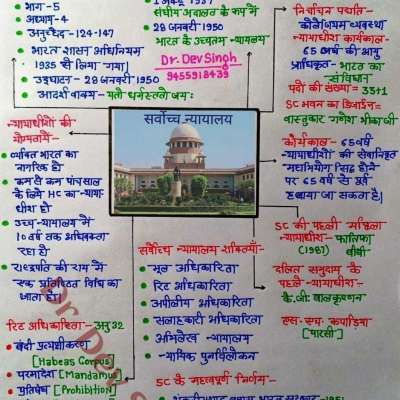 भाग-5
अध्याय-4
अनुच्छेद-124-147
भारत शासन अधिनियम
1935 से लिया गया।
उद्घाटन-28 जनवरी 1950
आदर्श वाक्य-यतो धर्मस्ततो जयः
1937
संघीय अदालत के रूप में
28 जनवरी 1950
भारत के उच्चतम न्यायालय
Dr. Dev Singh
9455918439
निर्वाचन पद्धति-
कॉलेजियम व्यवस्था
न्यायाधीश कार्यकाल-
65 वर्ष की आयु
प्राधिकृत-भारत का
संविधान
पदों की संख्या=33+1
SC भवन का डिजाईन=
वास्तुकार गणेश भीकाजी
सर्वोच्च न्यायालय
न्यायाधीशों की
योग्यतायें-
व्यक्ति भारत का
नागरिक हो
कम से कम पांच साल
के लिये HC का न्याया
धीश हो
उच्च न्यायालय में
10 वर्ष तक अधिवक्ता
रहा हो
राष्ट्रपति की राय में
एक प्रतिष्ठित विधि का
ज्ञाता हो।
रिट अधिकारिता-अनु 32
बंदी प्रत्यक्षीकरण
[Habeas Corpus]
परमादेश [Mandamus]
प्रतिषेध [Prohibition]
सर्वोच्च न्यायालय शक्तियाँ-
मूल अधिकारिता
रिट अधिकारिता
अपीलीय अधिकारिता
सलाहकारी अधिकारिता
अभिलेख न्यायालय
न्यायिक पुनर्विलोकन
SC के महत्वपूर्ण निर्णय-
कार्यकाल-65 वर्ष
न्यायाधीशों की सेवानिवृत
महाभियोग सिद्ध होने
पर 65 वर्ष से पूर्व
हटाया जा सकता है।
SC की पहली महिला
न्यायाधीश-फातिमा
(1987) बीबी
दलित समुदाय के
पहले न्यायाधीश-
के. जी बालकृष्णन
एस-एच-कपाड़िया
[पारसी]
Dr. Dev S